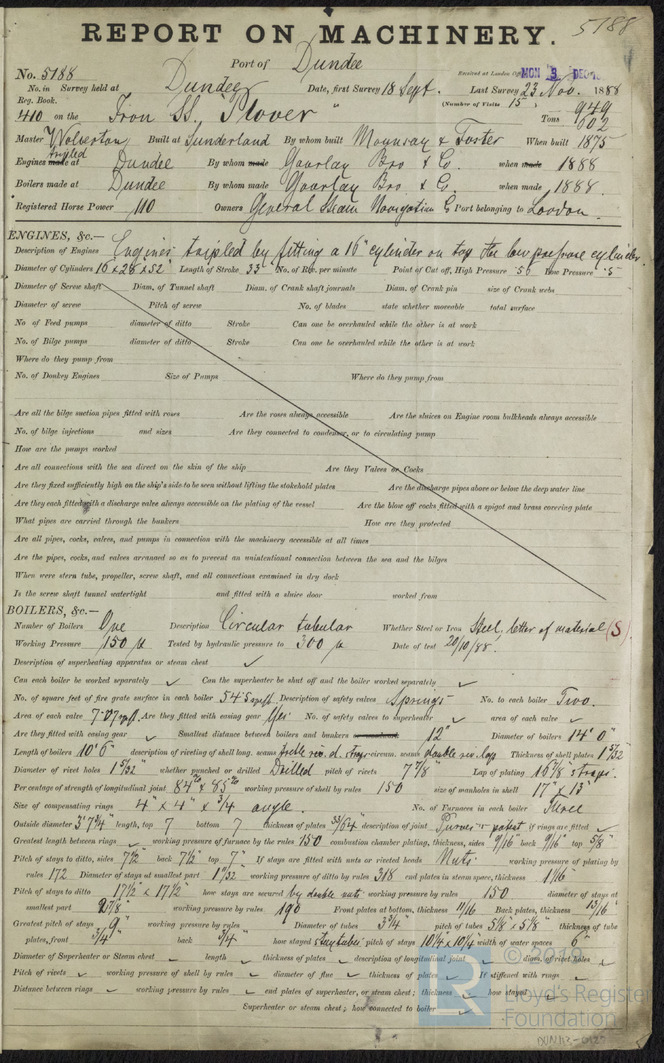 5188
REPORT ON MACHINERY.
Port of Dundee
No. 5188 Received at London Office MON 3 DEC
No. in Survey held at Dundee Date, first Survey 18 Sept. Last Survey 23 Nov. 1888
Reg. Book. (Number of Visits 15)
410 on the Iron SS. "Plover" Tons 949 602
Master Wolverton Built at Sunderland By whom built Mounsey & Foster When built 1875
Engines made at tripled Dundee By whom made Gourlay Bro & Co. when made 1888
Boilers made at Dundee By whom made Gourlay Bro. & Co. when made 1888.
Registered Horse Power 110 Owners General Steam Navigation Co Port belonging to London.
ENGINES, &c.—
Description of Engines Engines tripled by fitting a 16" cylinder on top the low pressure cylinder.
Diameter of Cylinders 16 x 28 x 52 Length of Stroke 33" No. of Rev. per minute Point of Cut off, High Pressure Low Pressure .5
Diameter of Screw shaft Diam. of Tunnel shaft Diam. of Crank shaft journals Diam. of Crank pin size of Crank webs
Diameter of screw Pitch of screw No. of blades state whether moveable total surface
No of Feed pumps diameter of ditto Stroke Can one be overhauled while the other is at work
No. of Bilge pumps diameter of ditto Stroke Can one be overhauled while the other is at work
Where do they pump from
No. of Donkey Engines Size of Pumps Where do they pump from
Are all the bilge suction pipes fitted with roses Are the roses always accessible Are the sluices on Engine room bulkheads always accessible
No. of bilge injections and sizes Are they connected to condenser, or to circulating pump
How are the pumps worked
Are all connections with the sea direct on the skin of the ship Are they Valves or Cocks
Are they fixed sufficiently high on the ship's side to be seen without lifting the stokehold plates Are the discharge pipes above or below the deep water line
Are they each fitted with a discharge valve always accessible on the plating of the vessel Are the blow off cocks fitted with a spigot and brass covering plate
What pipes are carried through the bunkers How are they protected
Are all pipes, cocks, valves, and pumps in connection with the machinery accessible at all times
Are the pipes, cocks, and valves arranged so as to prevent an unintentional connection between the sea and the bilges
When were stern tube, propeller, screw shaft, and all connections examined in dry dock
Is the screw shaft tunnel watertight and fitted with a sluice door worked from
BOILERS, &c.—
Number of Boilers One Description Circular tubular Whether Steel or Iron Steel, letter of material (S)
Working Pressure 150 lb Tested by hydraulic pressure to 300 lb Date of test 20/10/88.
Description of superheating apparatus or steam chest ✓
Can each boiler be worked separately ✓ Can the superheater be shut off and the boiler worked separately ✓
No. of square feet of fire grate surface in each boiler 54.5 sq ft Description of safety valves Springs No. to each boiler Two.
Area of each valve 7.07 sq in Are they fitted with easing gear Yes No. of safety valves to superheater ✓ area of each valve ✓
Are they fitted with easing gear ✓ Smallest distance between boilers and bunkers 12" Diameter of boilers 14' 0"
Length of boilers 10' 6" description of riveting of shell long. seams treble riv. d. straps circum. seams double riv lap Thickness of shell plates 1 5/32"
Diameter of rivet holes 1 5/32" whether punched or drilled Drilled pitch of rivets 7 7/8" Lap of plating 16 7/8" straps.
Percentage of strength of longitudinal joint 84% x 85% working pressure of shell by rules 150 size of manholes in shell 17" x 13"
Size of compensating rings 4" x 4" x 3/4 angle. No. of Furnaces in each boiler Three
Outside diameter 3' 7 3/4" length, top 7 bottom 7 thickness of plates 33/64" description of joint Purves patent if rings are fitted ✓
Greatest length between rings ✓ working pressure of furnace by the rules 150 combustion chamber plating, thickness, sides 9/16 back 9/16" top 5/8"
Pitch of stays to ditto, sides 7 1/2 back 7 1/2 top 7" If stays are fitted with nuts or riveted heads Nuts working pressure of plating by
rules 172 Diameter of stays at smallest part 1 9/32 working pressure of ditto by rules 318 end plates in steam space, thickness 1 1/16"
Pitch of stays to ditto 17 1/2 x 17 1/2" how stays are secured by double nuts working pressure by rules 150 diameter of stays at
smallest part 2 7/8" working pressure by rules 190 Front plates at bottom, thickness 11/16 Back plates, thickness 13/16"
Greatest pitch of stays 9" working pressure by rules Diameter of tubes 3 3/4" pitch of tubes 5 1/8 x 5 1/8" thickness of tube
plates, front 3/4" back 3/4" how stayed stay tubes pitch of stays 10 1/4 x 10 1/4 width of water spaces 6"
Diameter of Superheater or Steam chest ✓ length ✓ thickness of plates ✓ description of longitudinal joint ✓ diam. of rivet holes ✓
Pitch of rivets ✓ working pressure of shell by rules ✓ diameter of flue ✓ thickness of plates ✓ If stiffened with rings ✓
Distance between rings ✓ working pressure by rules ✓ end plates of superheater, or steam chest; thickness ✓ how stayed ✓
Superheater or steam chest; how connected to boiler ✓
Lloyd's Register
Foundation